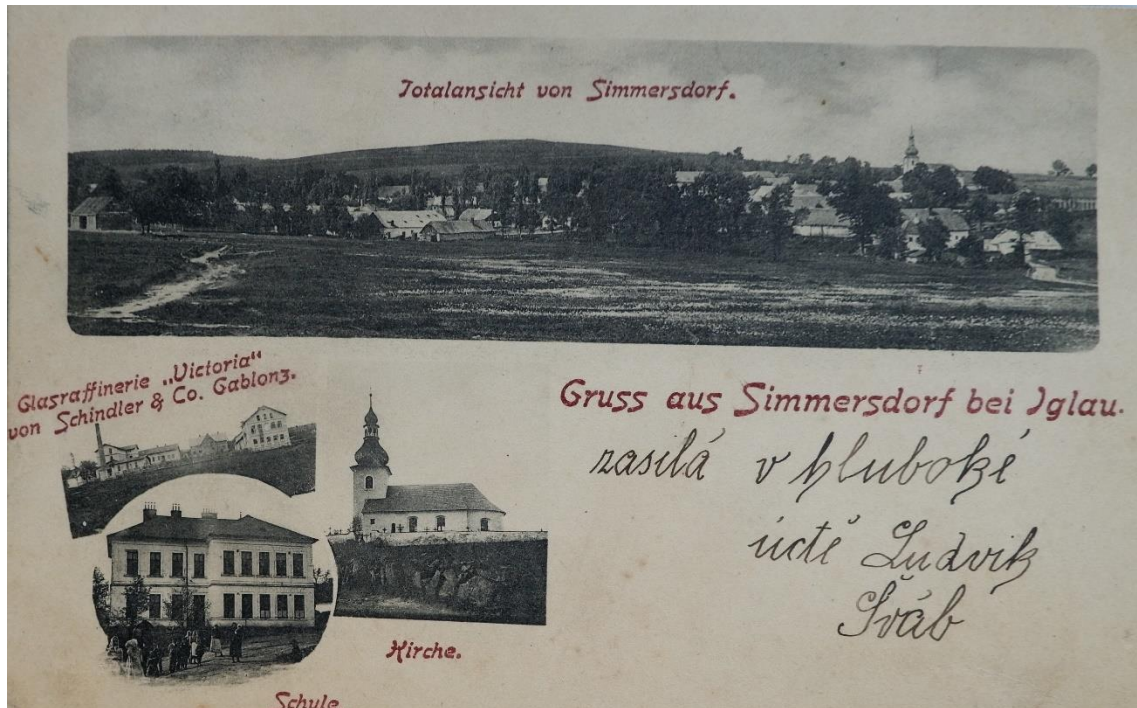 Totalansicht von Simmersdorf.
Glasraffinerie „Victoria“
von Schindler & Co. Gablonz.
Gruss aus Simmersdorf bei Iglau.
zasílá v hluboké
úctě Ludvik
Šváb
Kirche.
Schule